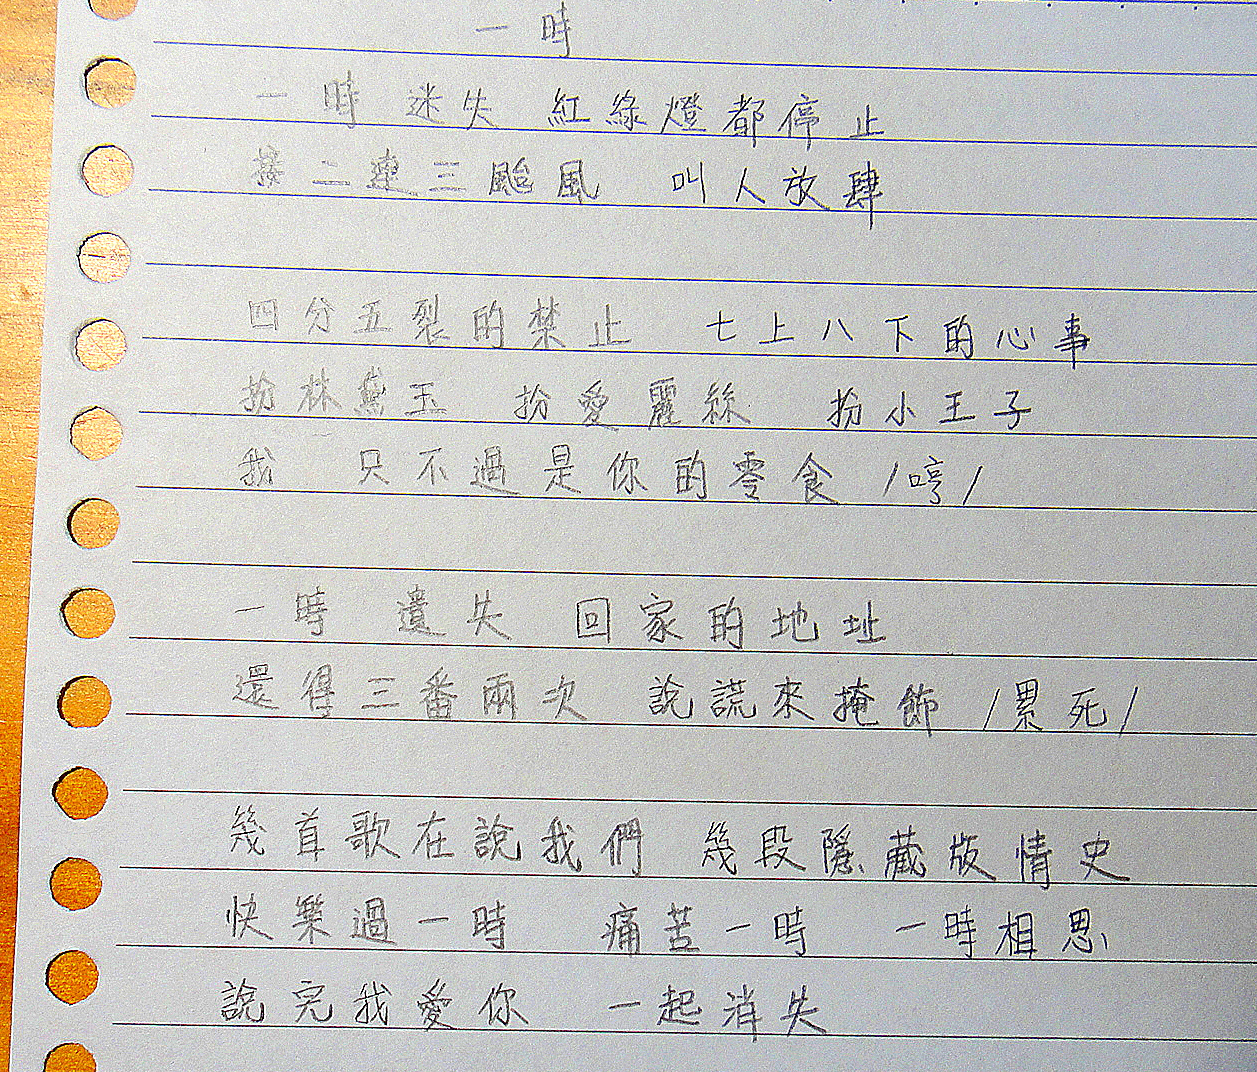 一時
一時 迷失 紅綠燈都停止
接二連三颱風 叫人放肆
四分五裂的禁止 七上八下的心事
扮林黛玉 扮愛麗絲 扮小王子
我 只不過是你的零食 /哼/
一時 遺失 回家的地址
還得三番兩次 說謊來掩飾 /累死/
幾首歌在說我們 幾段隱藏版情史
快樂過一時 痛苦一時 一時相思
說完我愛你 一起消失